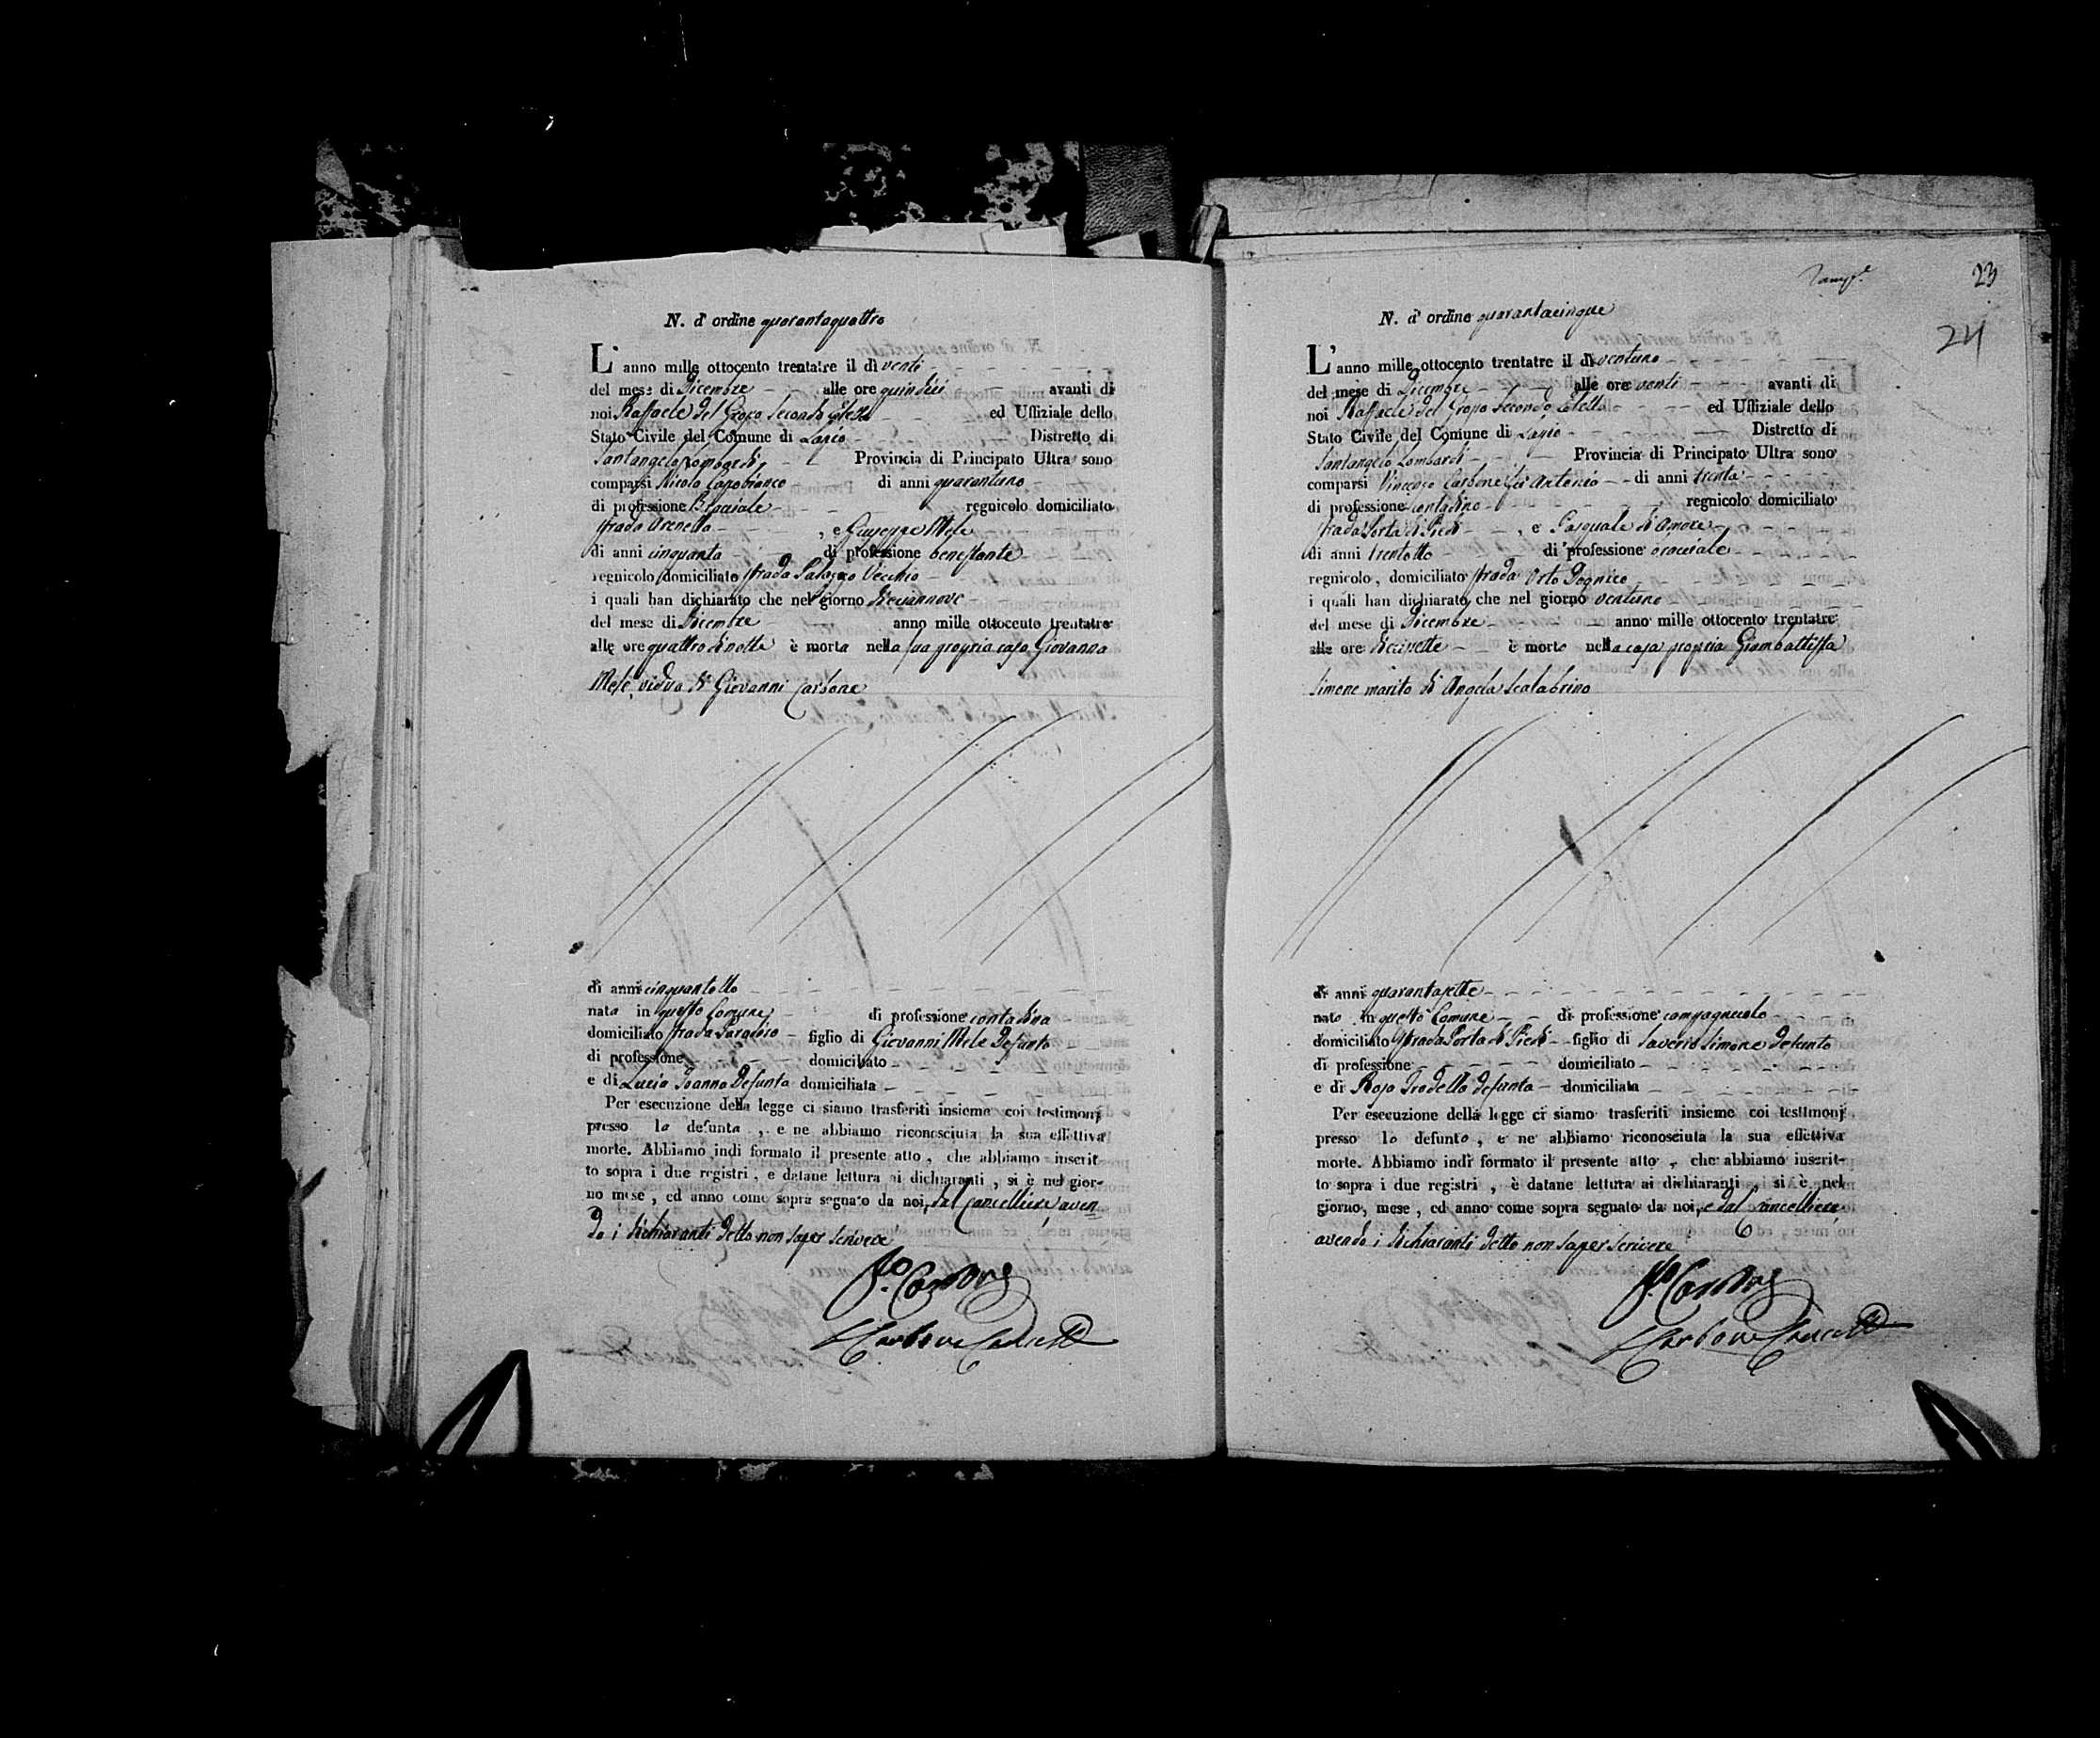 N. d'ordine quarantaquattro
L'anno mille ottocento trentatre il dì venti
del mese di Dicembre alle ore quindici avanti di
noi Raffaele del Grosso Secondo Eletto ed Uffiziale dello
Stato Civile del Comune di Lapio Distretto di
Santangelo Lombardi Provincia di Principato Ultra sono
comparsi Nicola Capobianco di anni quarantuno
di professione Bracciale regnicolo domiciliato
strada Arenella, e Giuseppe Mele
di anni cinquanta di professione benestante
regnicolo domiciliato strada Palazzo Vecchio
i quali han dichiarato che nel giorno diecinnove
del mese di Dicembre anno mille ottocento trentatre
alle ore quattro di notte è morta nella sua propria casa Giovanna
Mele vidua di Giovanni Carbone
di anni cinquantotto
nata in questo Comune di professione contadina
domiciliato strada Paradiso figlio di Giovanni Mele Defunto
di professione domiciliato
e di Lucia Ioanna Defunta domiciliata
Per esecuzione della legge ci siamo trasferiti insieme coi testimonj
presso la defunta, e ne abbiamo riconosciuta la sua effettiva
morte. Abbiamo indi formato il presente atto, che abbiamo inscrit-
to sopra i due registri, e datane lettura ai dichiaranti, si è nel gior-
no mese, ed anno come sopra segnato da noi, dal Cancelliere aven=
do i dichiaranti detto non saper scrivere
Carbone Cancell
23
24
N. d'ordine quarantacinque
L'anno mille ottocento trentatre il dì ventuno
del mese di Dicembre alle ore venti avanti di
noi Raffaele del Grosso Secondo Eletto ed Uffiziale dello
Stato Civile del Comune di Lapio Distretto di
Santangelo Lombardi Provincia di Principato Ultra sono
comparsi Vincenzo Carbone fu Antonio di anni trenta
di professione contadino regnicolo domiciliato
strada Porta di Piedi, e Pasquale di Amore
di anni trentotto di professione bracciale
regnicolo, domiciliato strada Orto
i quali han dichiarato che nel giorno ventuno
del mese di Dicembre anno mille ottocento trentatre
alle ore diecisette è morto nella casa propria Giambattista
Simone marito di Angela Scalabrino
di anni quarantasette
nato in questo Comune di professione campagnuolo
domiciliato strada Porta di Piedi figlio di Saverio Simone defunto
di professione domiciliato
e di Rosa defunta domiciliata
Per esecuzione della legge ci siamo trasferiti insieme coi testimonj
presso lo defunto, e ne abbiamo riconosciuta la sua effettiva
morte. Abbiamo indi formato il presente atto, che abbiamo inscrit-
to sopra i due registri, è datane lettura ai dichiaranti, si è nel
giorno, mese, ed anno come sopra segnato da noi, e dal Cancelliere
avendo i dichiaranti detto non saper scrivere
Carbone Cancell